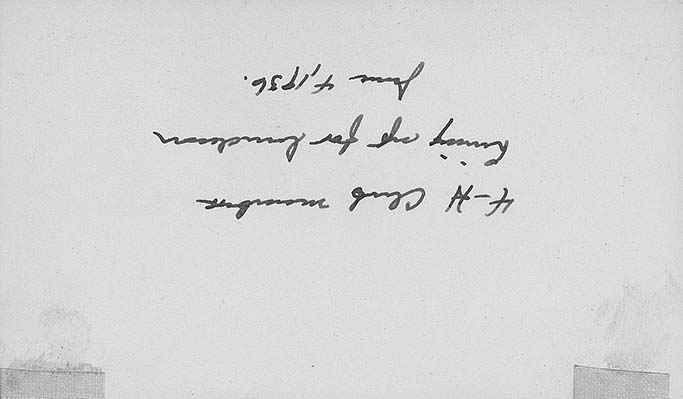 4-H Club members
lining up for luncheon
June 4, 1936.